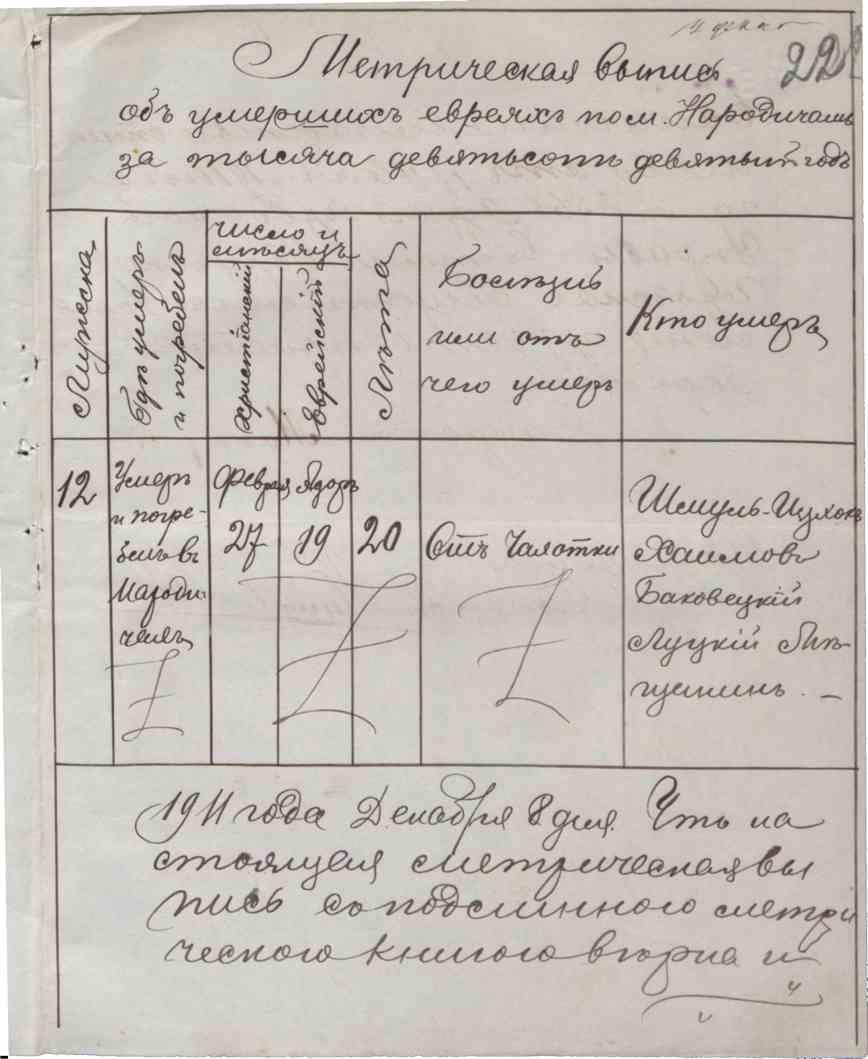 22
Метрическая выпись
объ умершихъ евреяхъ по м. Народичамъ
за тысяча девятьсотъ девятый годъ
Мужеска
Гдѣ умеръ
и погребенъ
Число и
мѣсяцъ
Христіанскій
Еврейскій
Лѣта
Болѣзнь
или отъ
чего умеръ
Кто умеръ
12
Умеръ
и погре-
бенъ въ
Народи-
чахъ
Феврал
27
Адоръ
19
20
Отъ Чахотки
Шмуль-Ицхокъ
Хаимовъ
Баковецкій
Луцкій Мѣ-
щанинъ. –
1911 года Декабря 8 дня. Что на
стоящая метрическая вы
пись съ подлинною метри
ческою книгою вѣрна и